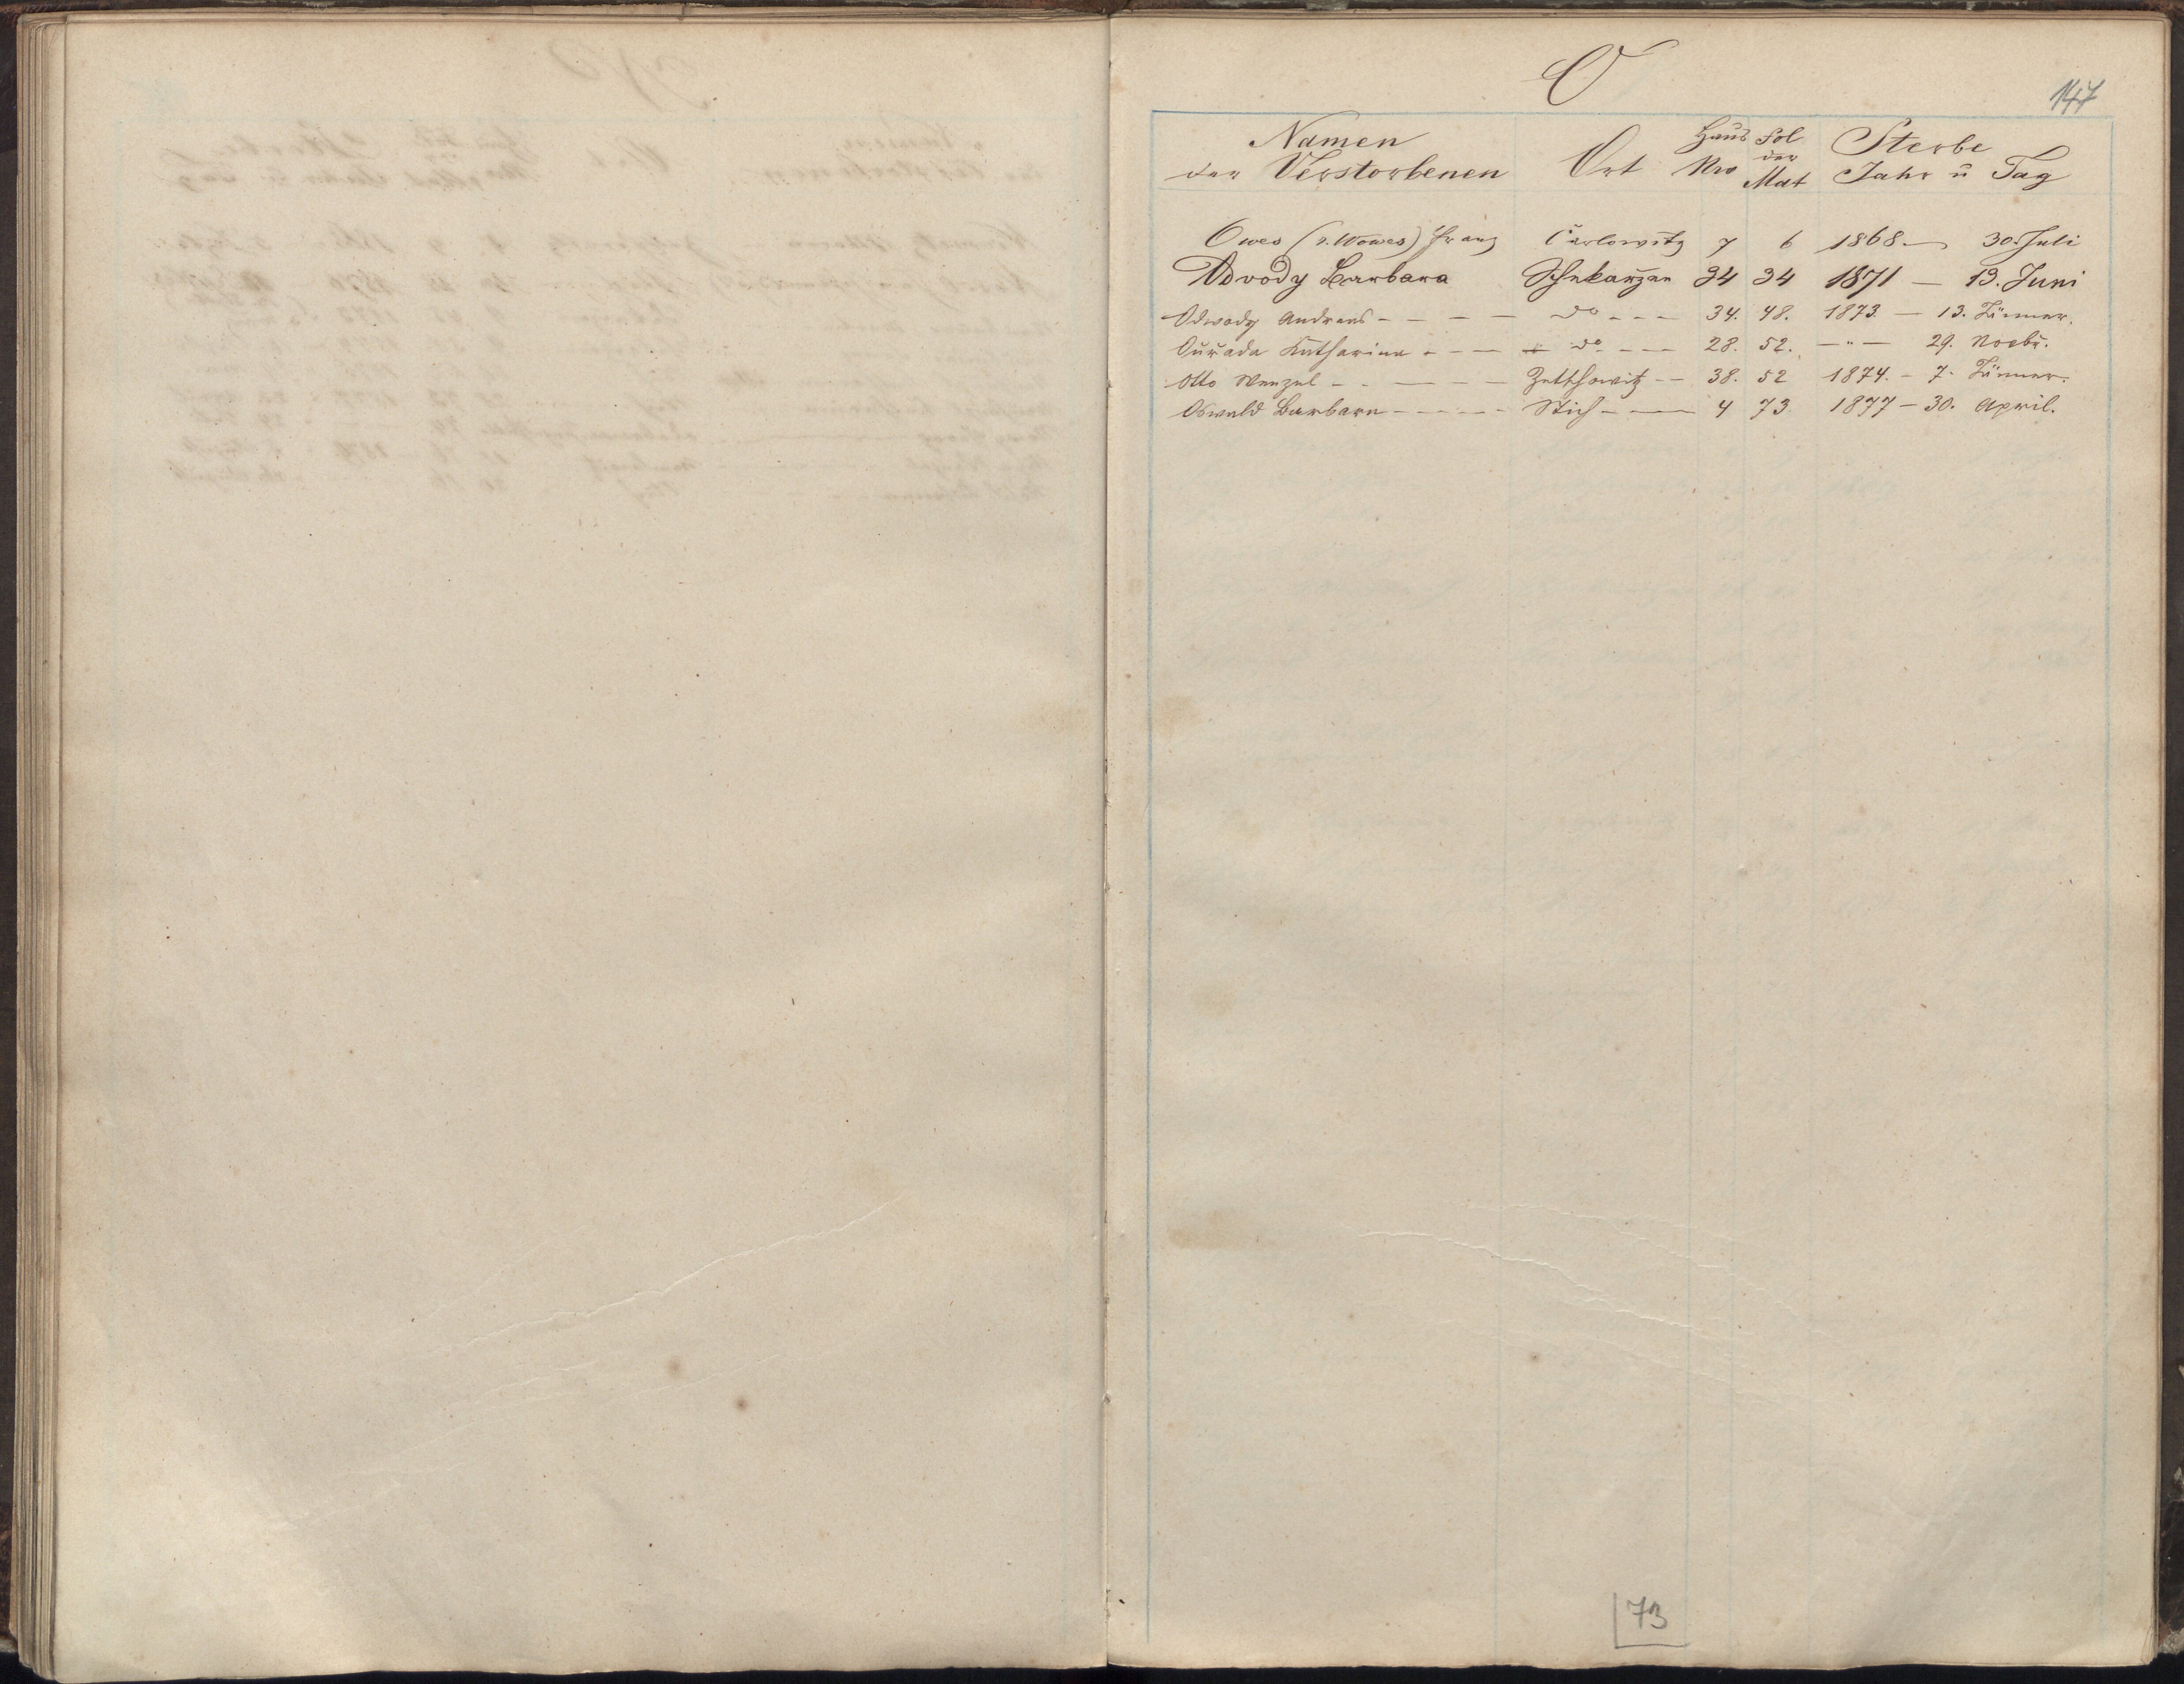 O
147
Namen der Verstorbenen Ort Haus Nro Fol der Mat Sterbe Jahr ū Tag
Owes (v. Wowes) Franz Čarlowitz 7 6 1868 — 30. Juli
Odvody Barbara Schekaržan 34 34 1871 — 13. Juni
Odwody Andreas - - - - do - - - 34. 48. 1873. — 13. Jänner.
Ouřada Katharina - - - do - - - 28. 52. — " — 29. Novbr.
Otto Wenzel - - - - - 38. 52 1874. - 7. Jänner.
Oswald Barbara - - - - - Stich - - 4 73. 1877 - 30. April.
73